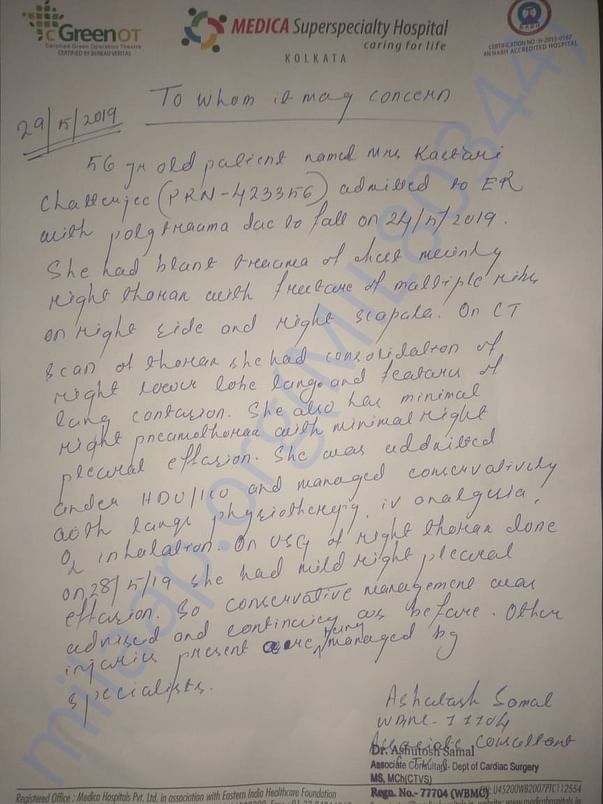 cGreenOT
Certified Green Operation Theatre
CERTIFIED BY BUREAU VERITAS
MEDICA Superspecialty Hospital
caring for life
KOLKATA
CERTIFICATION NO: H-2013-0167
AN NABH ACCREDITED HOSPITAL
29/5/2019
To whom it may concern
56 yr old patient named Mrs Kasturi
Chatterjee (PRN-423356) admitted to ER
with polytrauma due to fall on 24/5/2019.
She had blunt trauma of chest mainly
right thorax with fracture of multiple ribs
on right side and right scapula. On CT
scan of thorax she had consolidation of
right lower lobe lungs and features of
lung contusion. She also has minimal
right pneumothorax with minimal right
pleural effusion. She was admitted
under HDU/ICU and managed conservatively
with lungs physiotherapy, iv analgesia,
O2 inhalation. On USG of right thorax done
on 28/5/19 she had mild right pleural
effusion. So conservative management was
advised and continuing as before. Other
injuries present are being managed by
specialists.
Ashutosh Samal
WBMC-
Associate Consultant
Dr. Ashutosh Samal
Associate Consultant- Dept of Cardiac Surgery
MS, MCh(CTVS)
Regn. No.- 77704 (WBMC)
U45200WB2007PTC112554
Registered Office : Medica Hospitals Pvt. Ltd. in association with Eastern India Healthcare Foundation
milaap.org/MIL803444